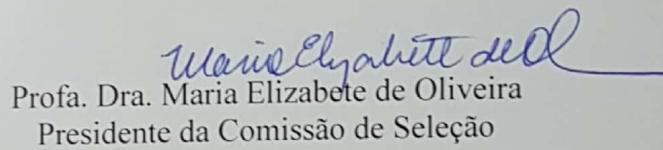 Maria Elizabete de Ol
Profa. Dra. Maria Elizabete de Oliveira
Presidente da Comissão de Seleção